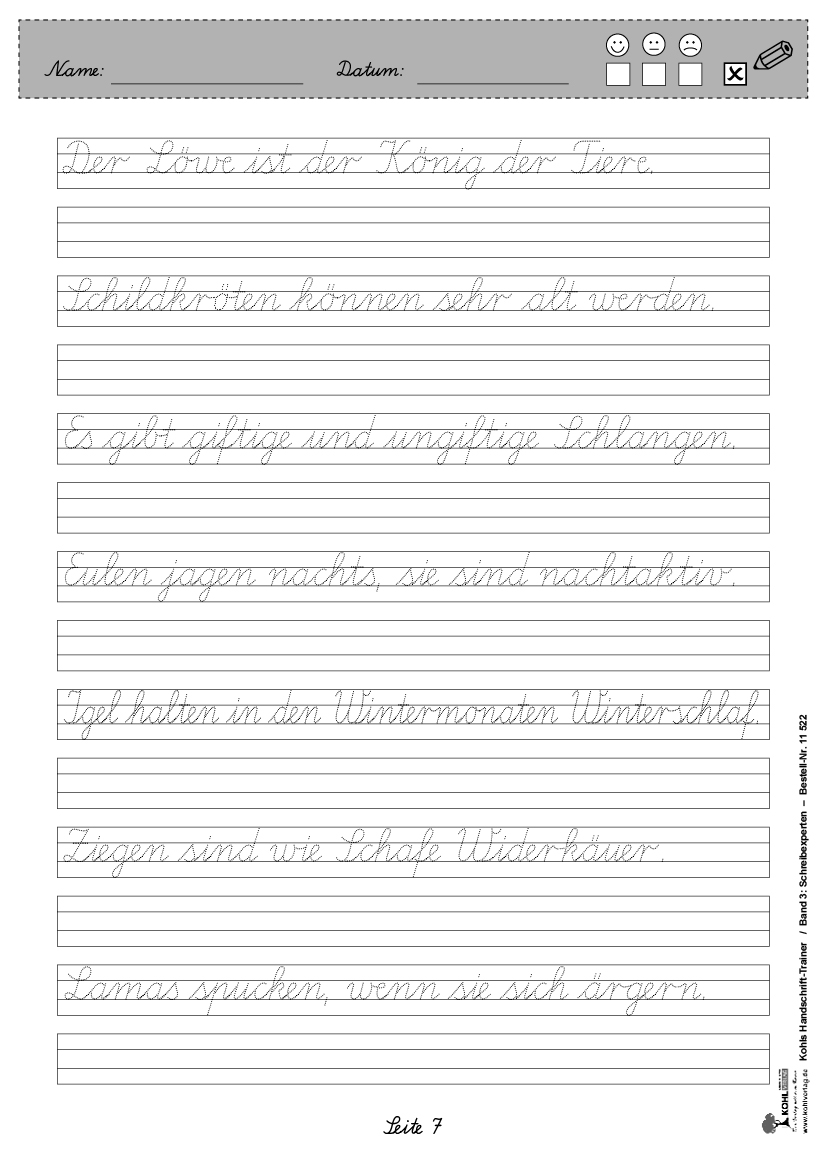 Name: Datum:
Der Löwe ist der König der Tiere.
Schildkröten können sehr alt werden.
Es gibt giftige und ungiftige Schlangen.
Eulen jagen nachts, sie sind nachtaktiv.
Igel halten in den Wintermonaten Winterschlaf.
Ziegen sind wie Schafe Widerkäuer.
Lamas spucken, wenn sie sich ärgern.
Seite 7
Kohls Handschrift-Trainer / Band 3: Schreibexperten – Bestell-Nr. 11 522
KOHL
www.kohlverlag.de